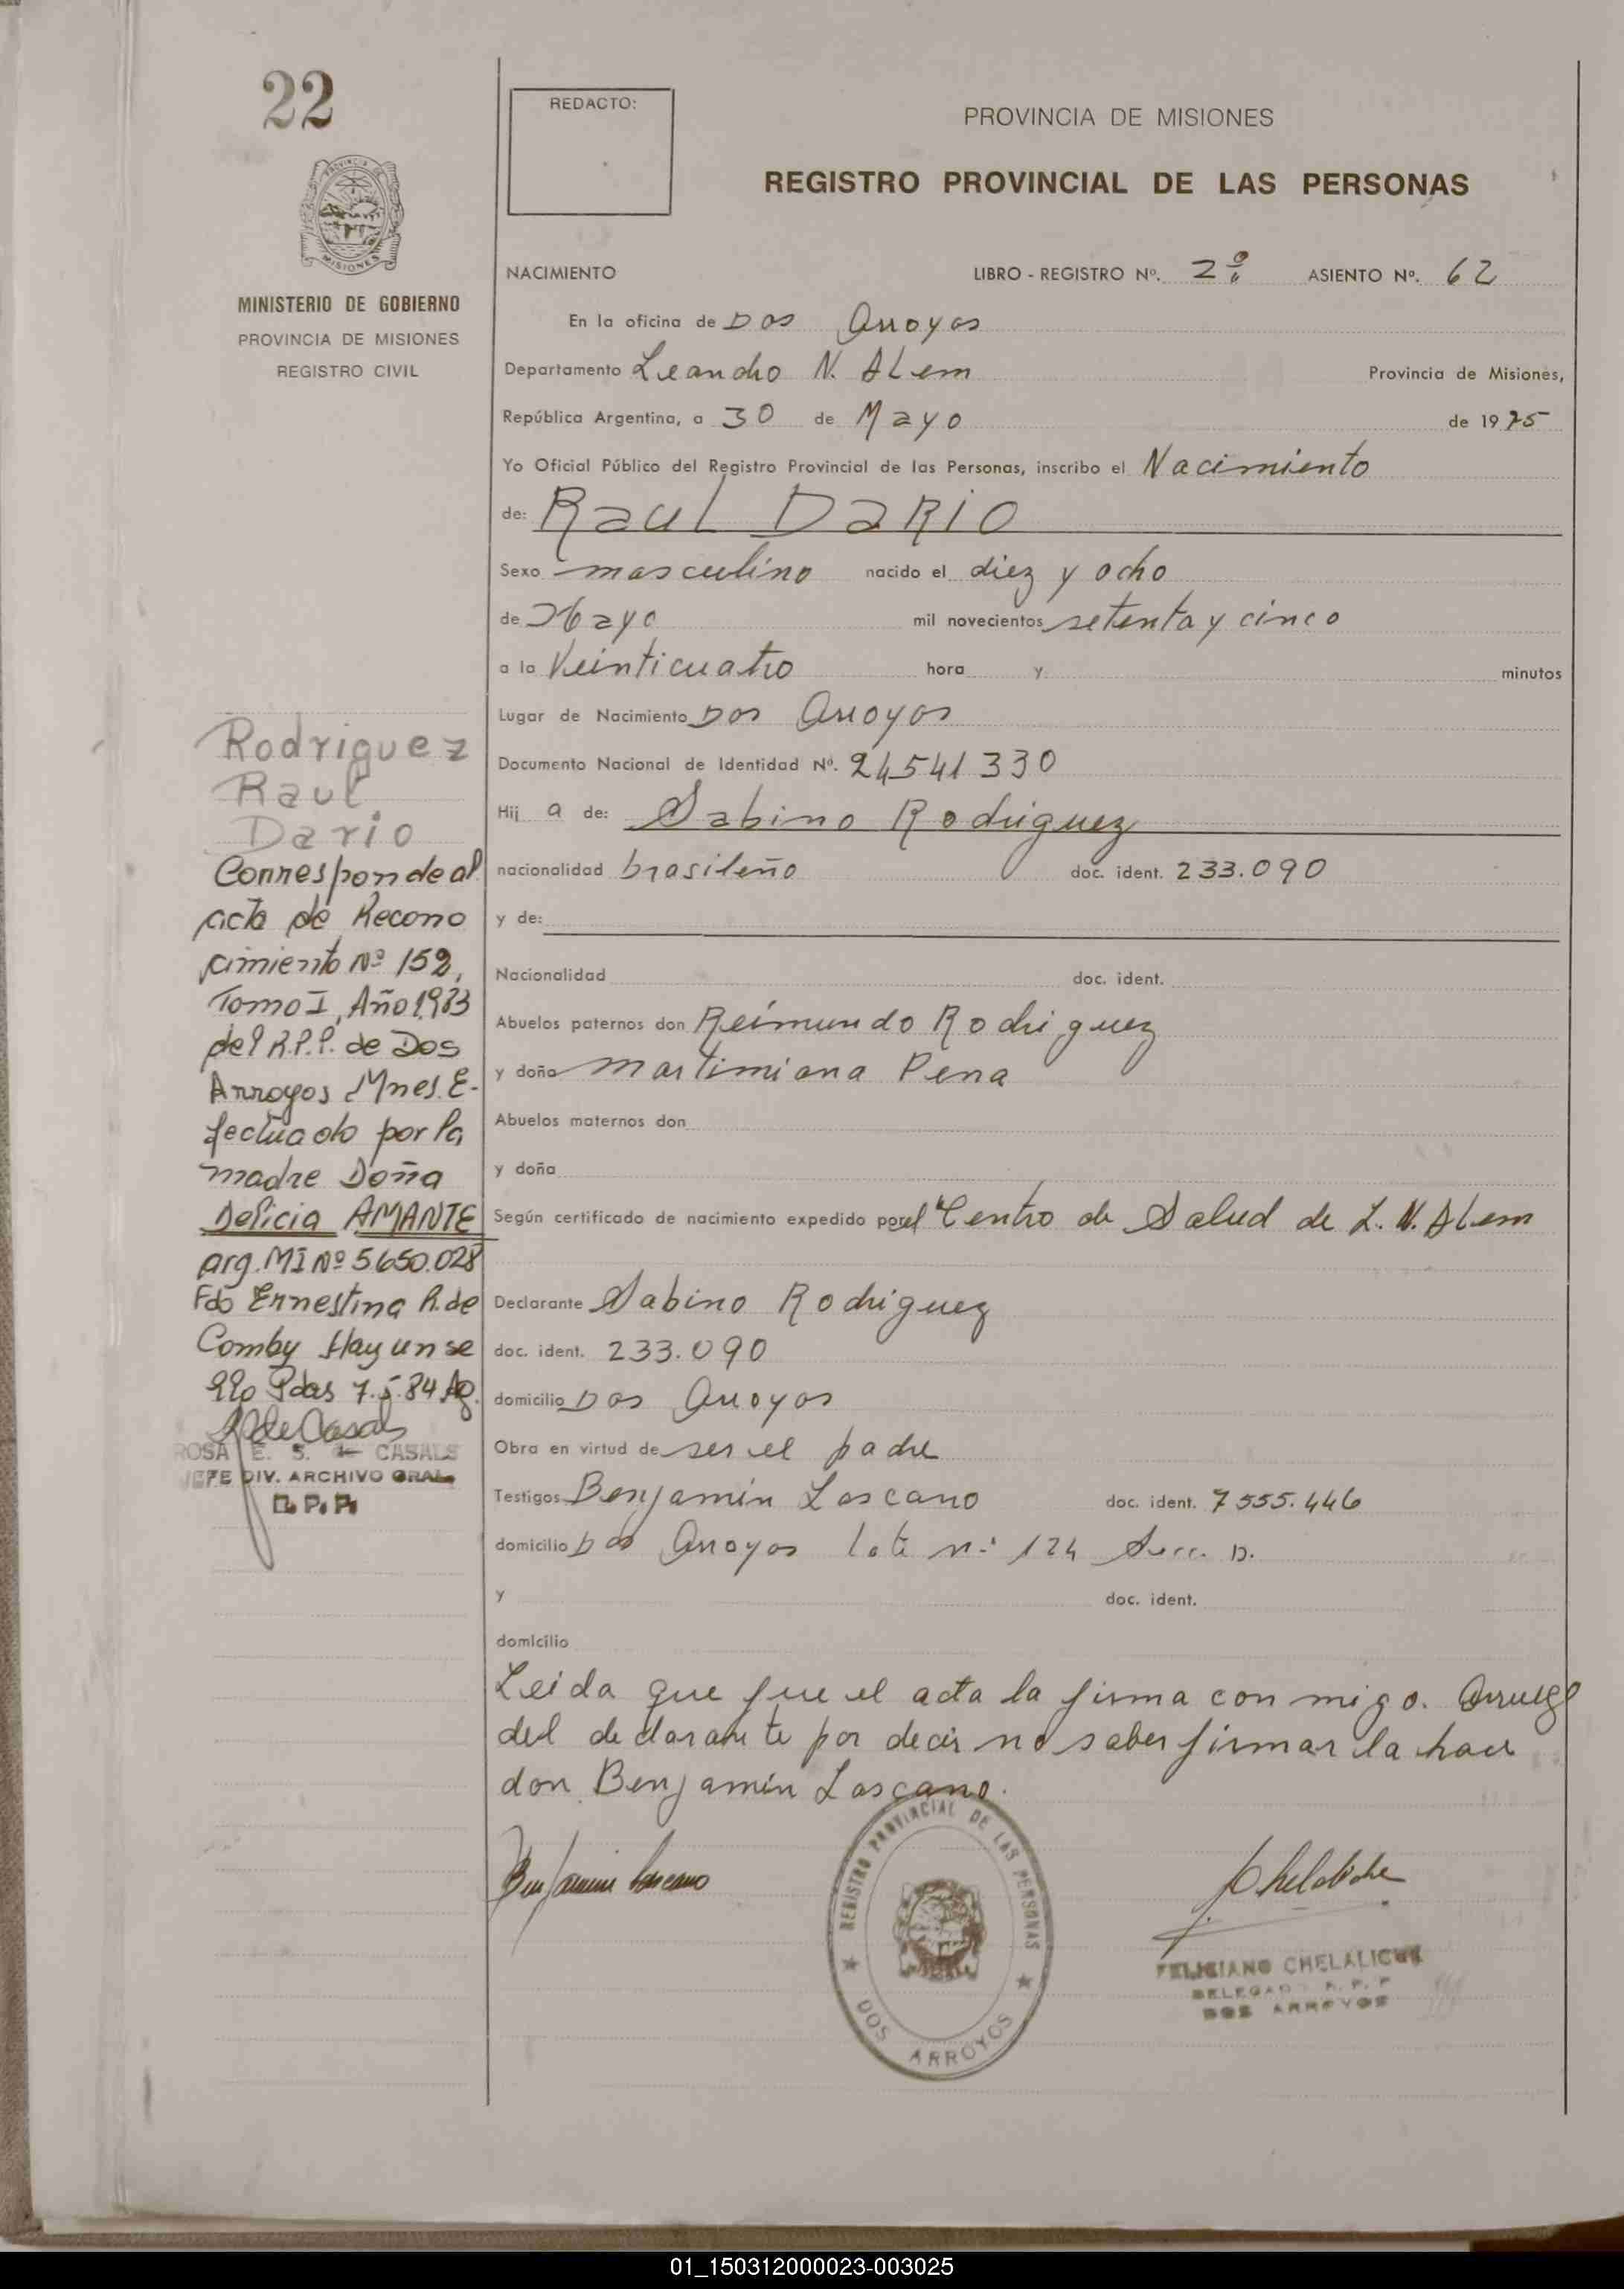 22
REDACTO:
PROVINCIA DE MISIONES
REGISTRO PROVINCIAL DE LAS PERSONAS
PROVINCIA DE
MISIONES
MINISTERIO DE GOBIERNO
PROVINCIA DE MISIONES
REGISTRO CIVIL
NACIMIENTO LIBRO - REGISTRO Nº. 2º ASIENTO Nº. 62
En la oficina de Dos Arroyos
Departamento Leandro N. Alem Provincia de Misiones,
República Argentina, a 30 de Mayo de 1975
Yo Oficial Público del Registro Provincial de las Personas, inscribo el Nacimiento
de: Raul Dario
Sexo masculino nacido el diez y ocho
de Mayo mil novecientos setenta y cinco
a la Veinticuatro hora y minutos
Lugar de Nacimiento Dos Arroyos
Documento Nacional de Identidad Nº. 24541330
Hij o de: Sabino Rodriguez
nacionalidad brasileño doc. ident. 233.090
y de:
Nacionalidad doc. ident.
Abuelos paternos don Reimundo Rodriguez
y doña Martimiana Pena
Abuelos maternos don
y doña
Según certificado de nacimiento expedido por el Centro de Salud de L. N. Alem
Declarante Sabino Rodriguez
doc. ident. 233.090
domicilio Dos Arroyos
Obra en virtud de ser el padre
Testigos Benjamin Loscano doc. ident. 7555.446
domicilio Dos Arroyos lote nº 124 Secc. D.
y doc. ident.
domicilio
Leida que fue el acta la firma con migo. Arruego
del declarante por decir no saber firmar la hace
don Benjamin Loscano.
Benjamin Loscano
REGISTRO PROVINCIAL DE LAS PERSONAS
DOS ARROYOS
FELICIANO CHELALICHE
DELEGADO R. P. P
DOS ARROYOS
Rodriguez
Raul
Dario
Corresponde al
acta de Recono
cimiento Nº 152,
Tomo I, Año 1983
del R.P.P. de Dos
Arroyos Mnes. E-
fectuado por la
madre Doña
Delicia AMANTE
arg. MI Nº 5.650.028
Fdo Ernestina R. de
Comby Hay un se
llo Pdas 7.5.84
ROSA E. S. de CASALS
JEFE DIV. ARCHIVO GRAL
R. P. P.
01_150312000023-003025